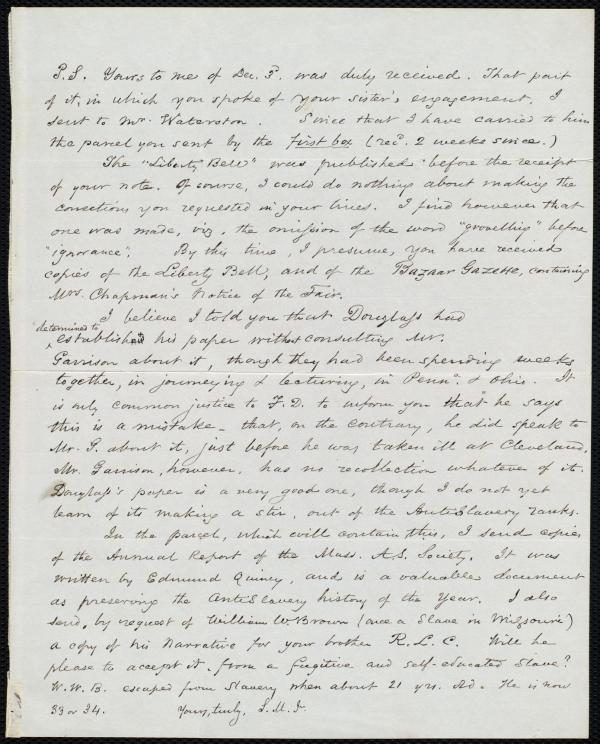 P.S. Yours to me of Dec. 3d. was duly received. That part
of it, in which you spoke of your sister's engagement, I
sent to Mr. Waterston. Since that I have carried to him
the parcel you sent by the first box (recd. 2 weeks since.)
The "Liberty Bell" was published before the receipt
of your note. Of course, I could do nothing about making the
corrections you requested in your lines. I find however that
one was made, viz, the omission of the word "grovelling" before
"ignorance". By this time, I presume, you have received
copies of the Liberty Bell, and of the Bazaar Gazette, containing
Mrs. Chapman's Notice of the Fair.
I believe I told you that Douglass had
"determined to
establish his paper without consulting Mr.
Garrison about it, though they had been spending weeks
together, in journeying & lecturing, in Penna. & Ohio. It
is only common justice to F.D. to inform you that he says
this is a mistake - that, on the contrary, he did speak to
Mr. G. about it, just before he was taken ill at Cleveland.
Mr. Garrison, however, has no recollection whatever of it.
Douglass's paper is a very good one, though I do not yet
learn of its making a stir, out of the AntiSlavery ranks.
In the parcel, which will contain this, I send copies
of the Annual Report of the Mass. A.S. Society. It was
written by Edmund Quincy, and is a valuable document
as preserving the AntiSlavery history of the Year. I also
send, by request of William W. Brown (once a Slave in Missouri)
a copy of his Narrative for your brother R.L.C. Will he
please to accept it, from a fugitive and self-educated Slave?
W.W.B. escaped from Slavery when about 21 yrs. old. He is now
33 or 34. Yours, truly, S.M.Jr.